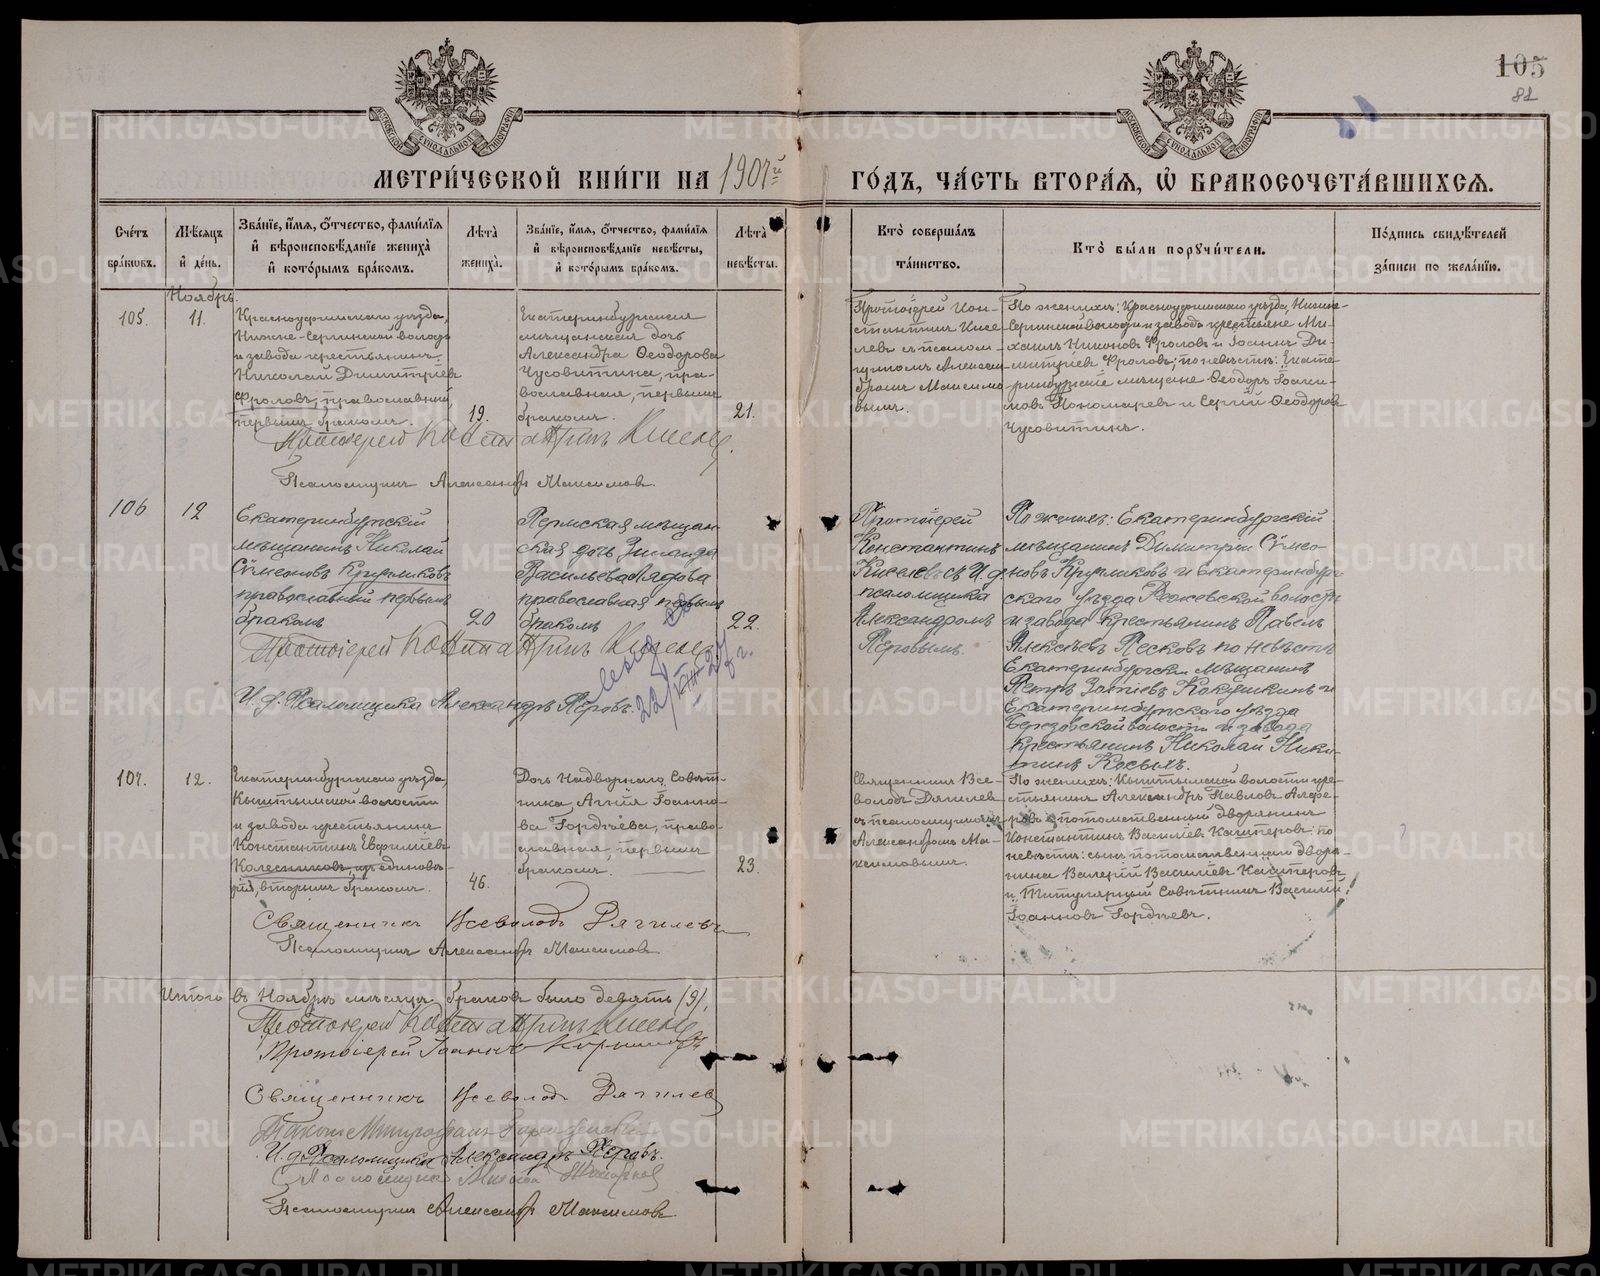 105
82
МЕТРИ́ЧЕСКОЙ КНИ́ГИ НА 1907й ГО́ДЪ, ЧА́СТЬ ВТОРА́Я, Ѽ БРАКОСОЧЕТА́ВШИХСЯ.
Сче́тъ бра́кωвъ.
Мѣ́сяцъ и҆ де́нь.
Зва́нїе, и҆́мя, ѻ҆́тчество, фами́лїя и҆ вѣроисповѣ́данїе жениха̀ и҆ кото́рымъ бра́комъ.
Лѣ́та жениха̀.
Зва́нїе, и҆́мя, ѻ҆́тчество, фами́лїя и҆ вѣроисповѣ́данїе невѣ́сты, и҆ кото́рымъ бра́комъ.
Лѣ́та невѣ́сты.
Кто̀ соверша́лъ та́инство.
Кто̀ бы́ли поручи́тели.
По́дпись свидѣ́телей за́писи по жела́нїю.
Ноябрь
105.
11.
Красноуфимскаго уѣзда,
Нижне-Сергинской волости
и завода крестьянинъ
Николай Димитріевъ
Фроловъ, православный
первымъ бракомъ.
19.
Екатеринбургская
мѣщанская дочь
Александра Ѳеодорова
Чусовитина, пра-
вославная, первымъ
бракомъ.
21.
Протоіерей Кон-
стантинъ Кисе-
левъ съ псалом-
щикомъ Алексан-
дромъ Максимо-
вымъ.
По женихѣ: Красноуфимскаго уѣзда, Нижне-
Сергинской волости и завода крестьяне Ми-
хаилъ Никоновъ Фроловъ и Іоаннъ Ди-
митріевъ Фроловъ; по невѣстѣ: Екате-
ринбургскіе мѣщане Ѳеодоръ Іоаки-
мовъ Пономаревъ и Сергій Ѳеодоровъ
Чусовитинъ.
Протоіерей Константинъ Киселевъ.
Псаломщикъ Александръ Максимовъ.
106
12
Екатеринбургскій
мѣщанинъ Николай
Сѵмеоновъ Кругликовъ
православный первымъ
бракомъ
20
Пермская мѣщан
ская дочь Зинаида
Васильева Лядова
православная первымъ
бракомъ
22.
Протоіерей
Константинъ
Киселевъ съ И. д.
псаломщика
Александромъ
Перовымъ.
По женихѣ: Екатеринбургскій
мѣщанинъ Димитрій Сѵмео-
новъ Кругликовъ и Екатеринбург
скаго уѣзда Режевской волости
и завода крестьянинъ Павелъ
Алексѣевъ Песковъ по невѣстѣ
Екатеринбургскій мѣщанинъ
Петръ Зотіевъ Кокушкинъ и
Екатеринбургскаго уѣзда
Березовской волости и завода
крестьянинъ Николай Ники-
тинъ Косыхъ.
Протоіерей Константинъ Киселевъ
И. д. Псаломщика Александръ Перовъ.
22/VIII-27 г.
107.
12.
Екатеринбургскаго уѣзда,
Кыштымской волости
и завода крестьянинъ
Константинъ Евфиміевъ
Колесниковъ, единовѣ-
рія, вторымъ бракомъ.
46.
Дочь Надворнаго Совѣт-
ника Агнія Іоанно-
ва Гордѣева, право-
славная, первымъ
бракомъ.
23.
Священникъ Все-
володъ Дягилевъ
съ псаломщикомъ
Александромъ Ма-
ксимовымъ.
По женихѣ: Кыштымской волости кре-
стьянинъ Александръ Павловъ Алфе-
ровъ и потомственный дворянинъ
Константинъ Василіевъ Кашперовъ; по
невѣстѣ: сынъ потомственнаго дворя-
нина Валерій Василіевъ Кашперовъ
и Титулярный Совѣтникъ Василій
Іоанновъ Гордѣевъ.
Священникъ Всеволодъ Дягилевъ
Псаломщикъ Александръ Максимовъ.
Итого въ Ноябрѣ мѣсяцѣ браковъ было девять (9).
Протоіерей Константинъ Киселевъ
Протоіерей Іоаннъ
Священникъ Всеволодъ Дягилевъ
И. д. Псаломщика Александръ Перовъ.
Псаломщикъ
Псаломщикъ Александръ Максимовъ.
METRIKI.GASO-URAL.RU